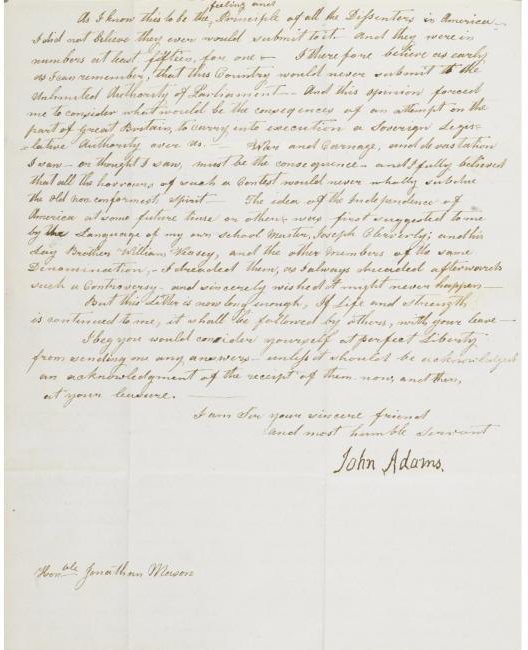 feeling and
As I know this to be the Principle of all the Dissenters in America—
I did not believe they ever would submit to it. And they were in
numbers at least fifteen, for one— I therefore believe as early
as I can remember, that this Country would never submit to the
unlimited Authority of Parliament— And this opinion forced
me to consider what would be the conseqences of an attempt on the
part of Great Britain, to carry into execution a Sovereign Legis-
-lative Authority over us.— War and Carnage, and devastation
I saw— or thought I saw, must be the consequence— and I fully believed
that all the horrours of such a Contest would never wholly subdue
the old non conformist, spirit— The idea of the Independence of
America at some future time or other, was first suggested to me
by the Language of my own School Master, Joseph Cleverly; and his
lay Brother William Veasey, and the other members of the same
Denomination,— I dreaded them, as I always dreaded afterwards
such a Controversy— and sincerely wished it might never happen—
But this Letter is now long enough, If Life and strength
is continued to me, it shall be followed by others, with your leave—
I beg you would consider yourself at perfect Liberty
from sending me any answers— unless it should be acknowledged
an acknowledgment of the receipt of them now, and then,
at your leasure.—
I am Sir your sincere friend
and most humble Servant
John Adams.
Honble Jonathan Mason